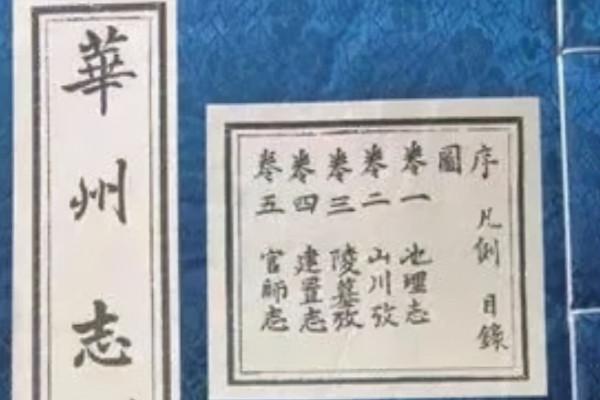 華州志
序 凡例 目錄
圖
卷一 地理志
卷二 山川攷
卷三 陵墓攷
卷四 建置志
卷五 官師志